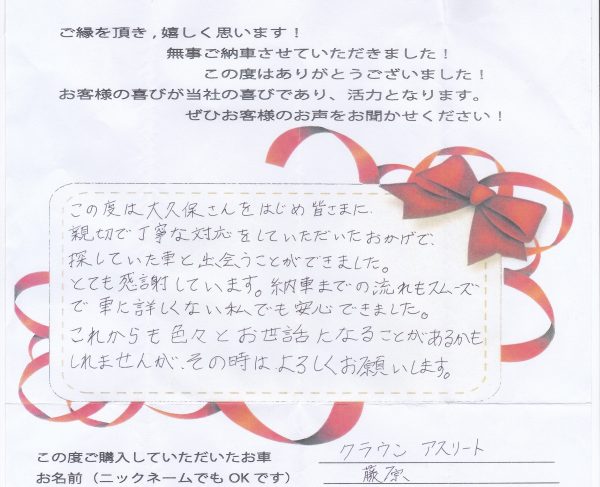 ご縁を頂き,嬉しく思います!
無事ご納車させていただきました!
この度はありがとうございました!
お客様の喜びが当社の喜びであり、活力となります。
ぜひお客様のお声をお聞かせください!
この度は大久保さんをはじめ皆さまに、
親切で丁寧な対応をしていただいたおかげで、
探していた車と出会うことができました。
とても感謝しています。納車までの流れもスムーズ
で車に詳しくない私でも安心できました。
これからも色々とお世話になることがあるかも
しれませんが、その時はよろしくお願いします。
この度ご購入していただいたお車 クラウン アスリート
お名前(ニックネームでもOKです) 藤原